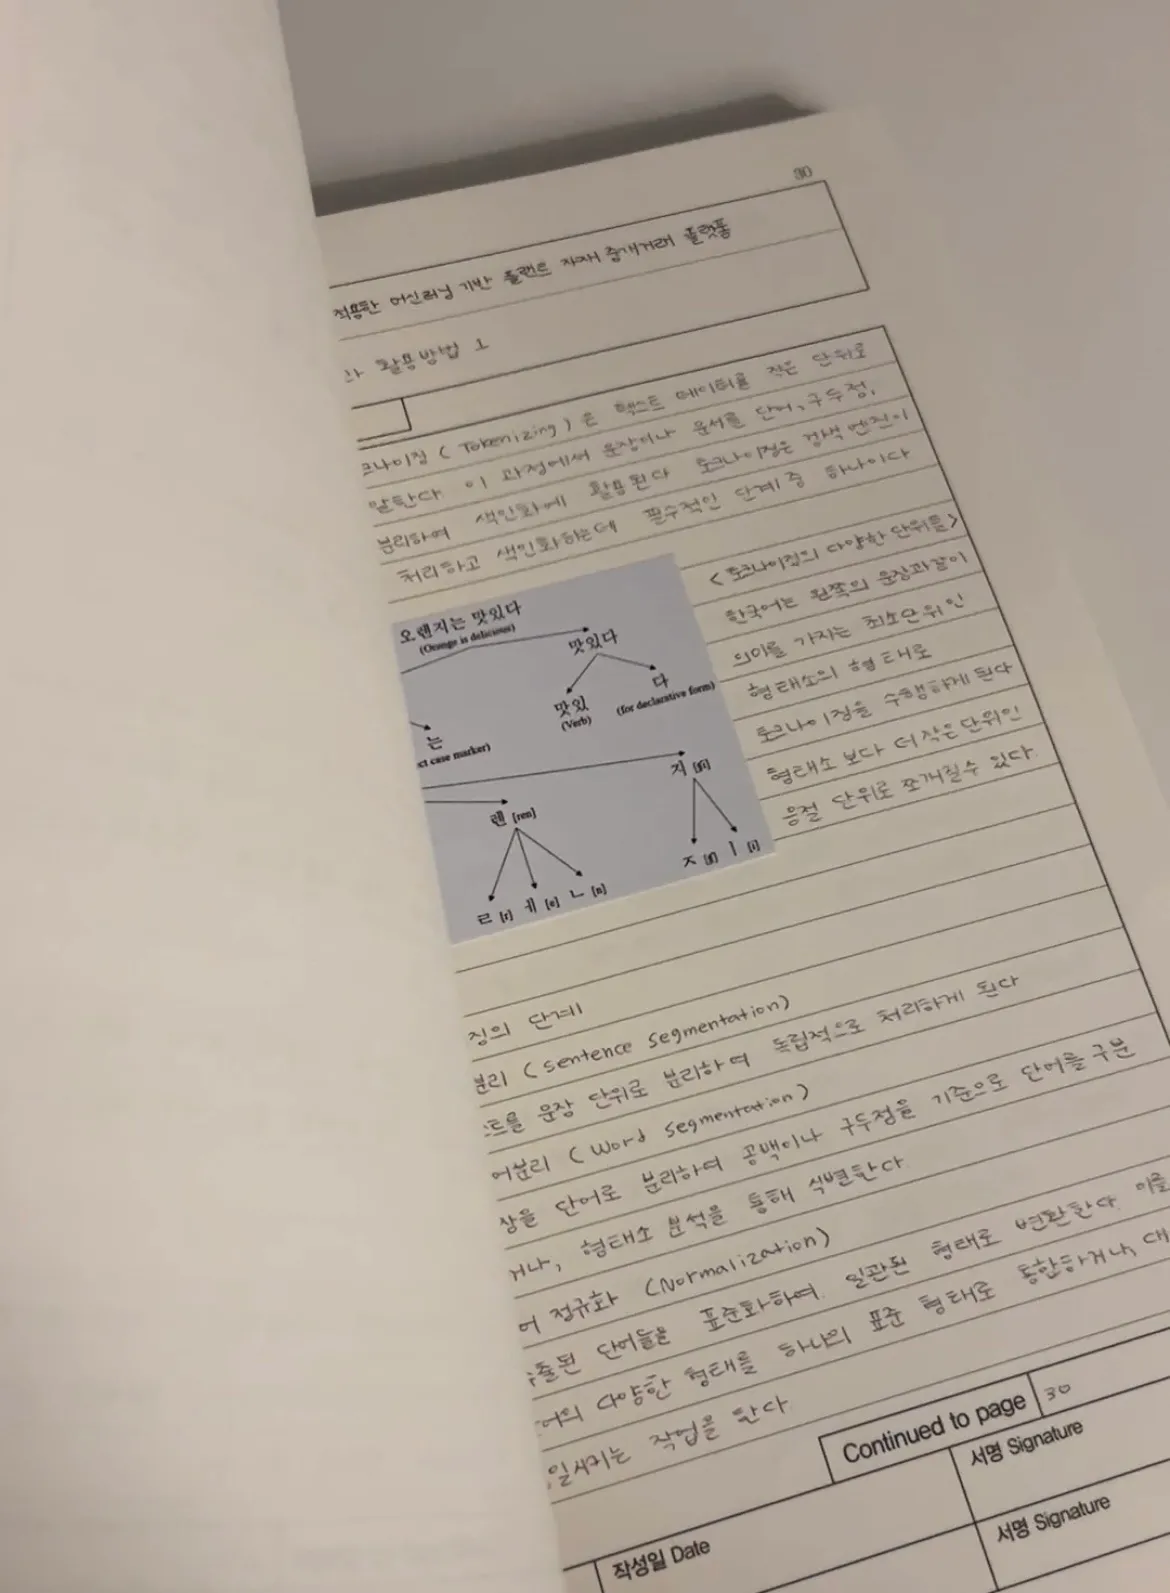 30
적용한 머신러닝 기반 플랜트 자재 중개거래 플랫폼
과 활용방법 1
크나이징 ( Tokenizing ) 은 텍스트 데이터를 작은 단위로
말한다. 이 과정에서 문장이나 문서를 단어, 구두점,
분리하여 색인화에 활용된다 토크나이징은 검색 엔진이
처리하고 색인화하는데 필수적인 단계 중 하나이다
<토크나이징의 다양한 단위들>
한국어는 왼쪽의 문장과같이
의미를 가지는 최소단위인
형태소의 형태로
토크나이징을 수행하게 된다
형태소 보다 더 작은단위인
음절 단위로 쪼개질수 있다.
오렌지는 맛있다
(Orange is delicious)
맛있다
맛있
(Verb)
다
(for declarative form)
는
ct case marker)
지 [ʤi]
렌 [ren]
ㅈ [ʤ] ㅣ [i]
ㄹ [r] ㅔ [e] ㄴ [n]
징의 단계
분리 ( sentence segmentation)
스트를 문장 단위로 분리하여 독립적으로 처리하게 된다
어분리 ( Word segmentation )
장을 단어로 분리하며 공백이나 구두점을 기준으로 단어를 구분
거나, 형태소 분석을 통해 식별한다.
어 정규화 (Normalization)
추출된 단어들을 표준화하여 일관된 형태로 변환한다. 이를
어의 다양한 형태를 하나의 표준 형태로 통합하거나, 대
일시키는 작업을 한다.
Continued to page 30
서명 Signature
작성일 Date
서명 Signature